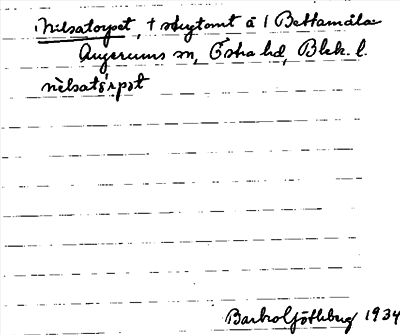 Nilsatorpet, † stugtomt å 1 Bettamåla
Augerums sn, Östra hd, Blek. l.
nilsatórpət
Barbro Götlberg 1934